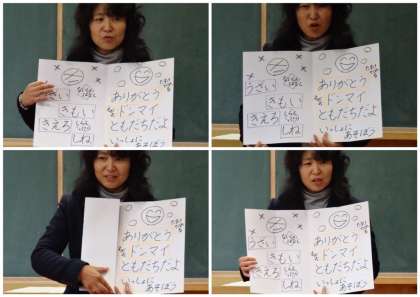 うざい
きもい
きえろ
しね
ありがとう
ドンマイ
ともだちだよ
いっしょに
あそぼう
うざい
きもい
きえろ
しね
ありがとう
ドンマイ
ともだちだよ
いっしょに
あそぼう
ありがとう
ドンマイ
ともだちだよ
いっしょに
あそぼう
うざい
きもい
きえろ
しね
ありがとう
ドンマイ
ともだちだよ
いっしょに
あそぼう